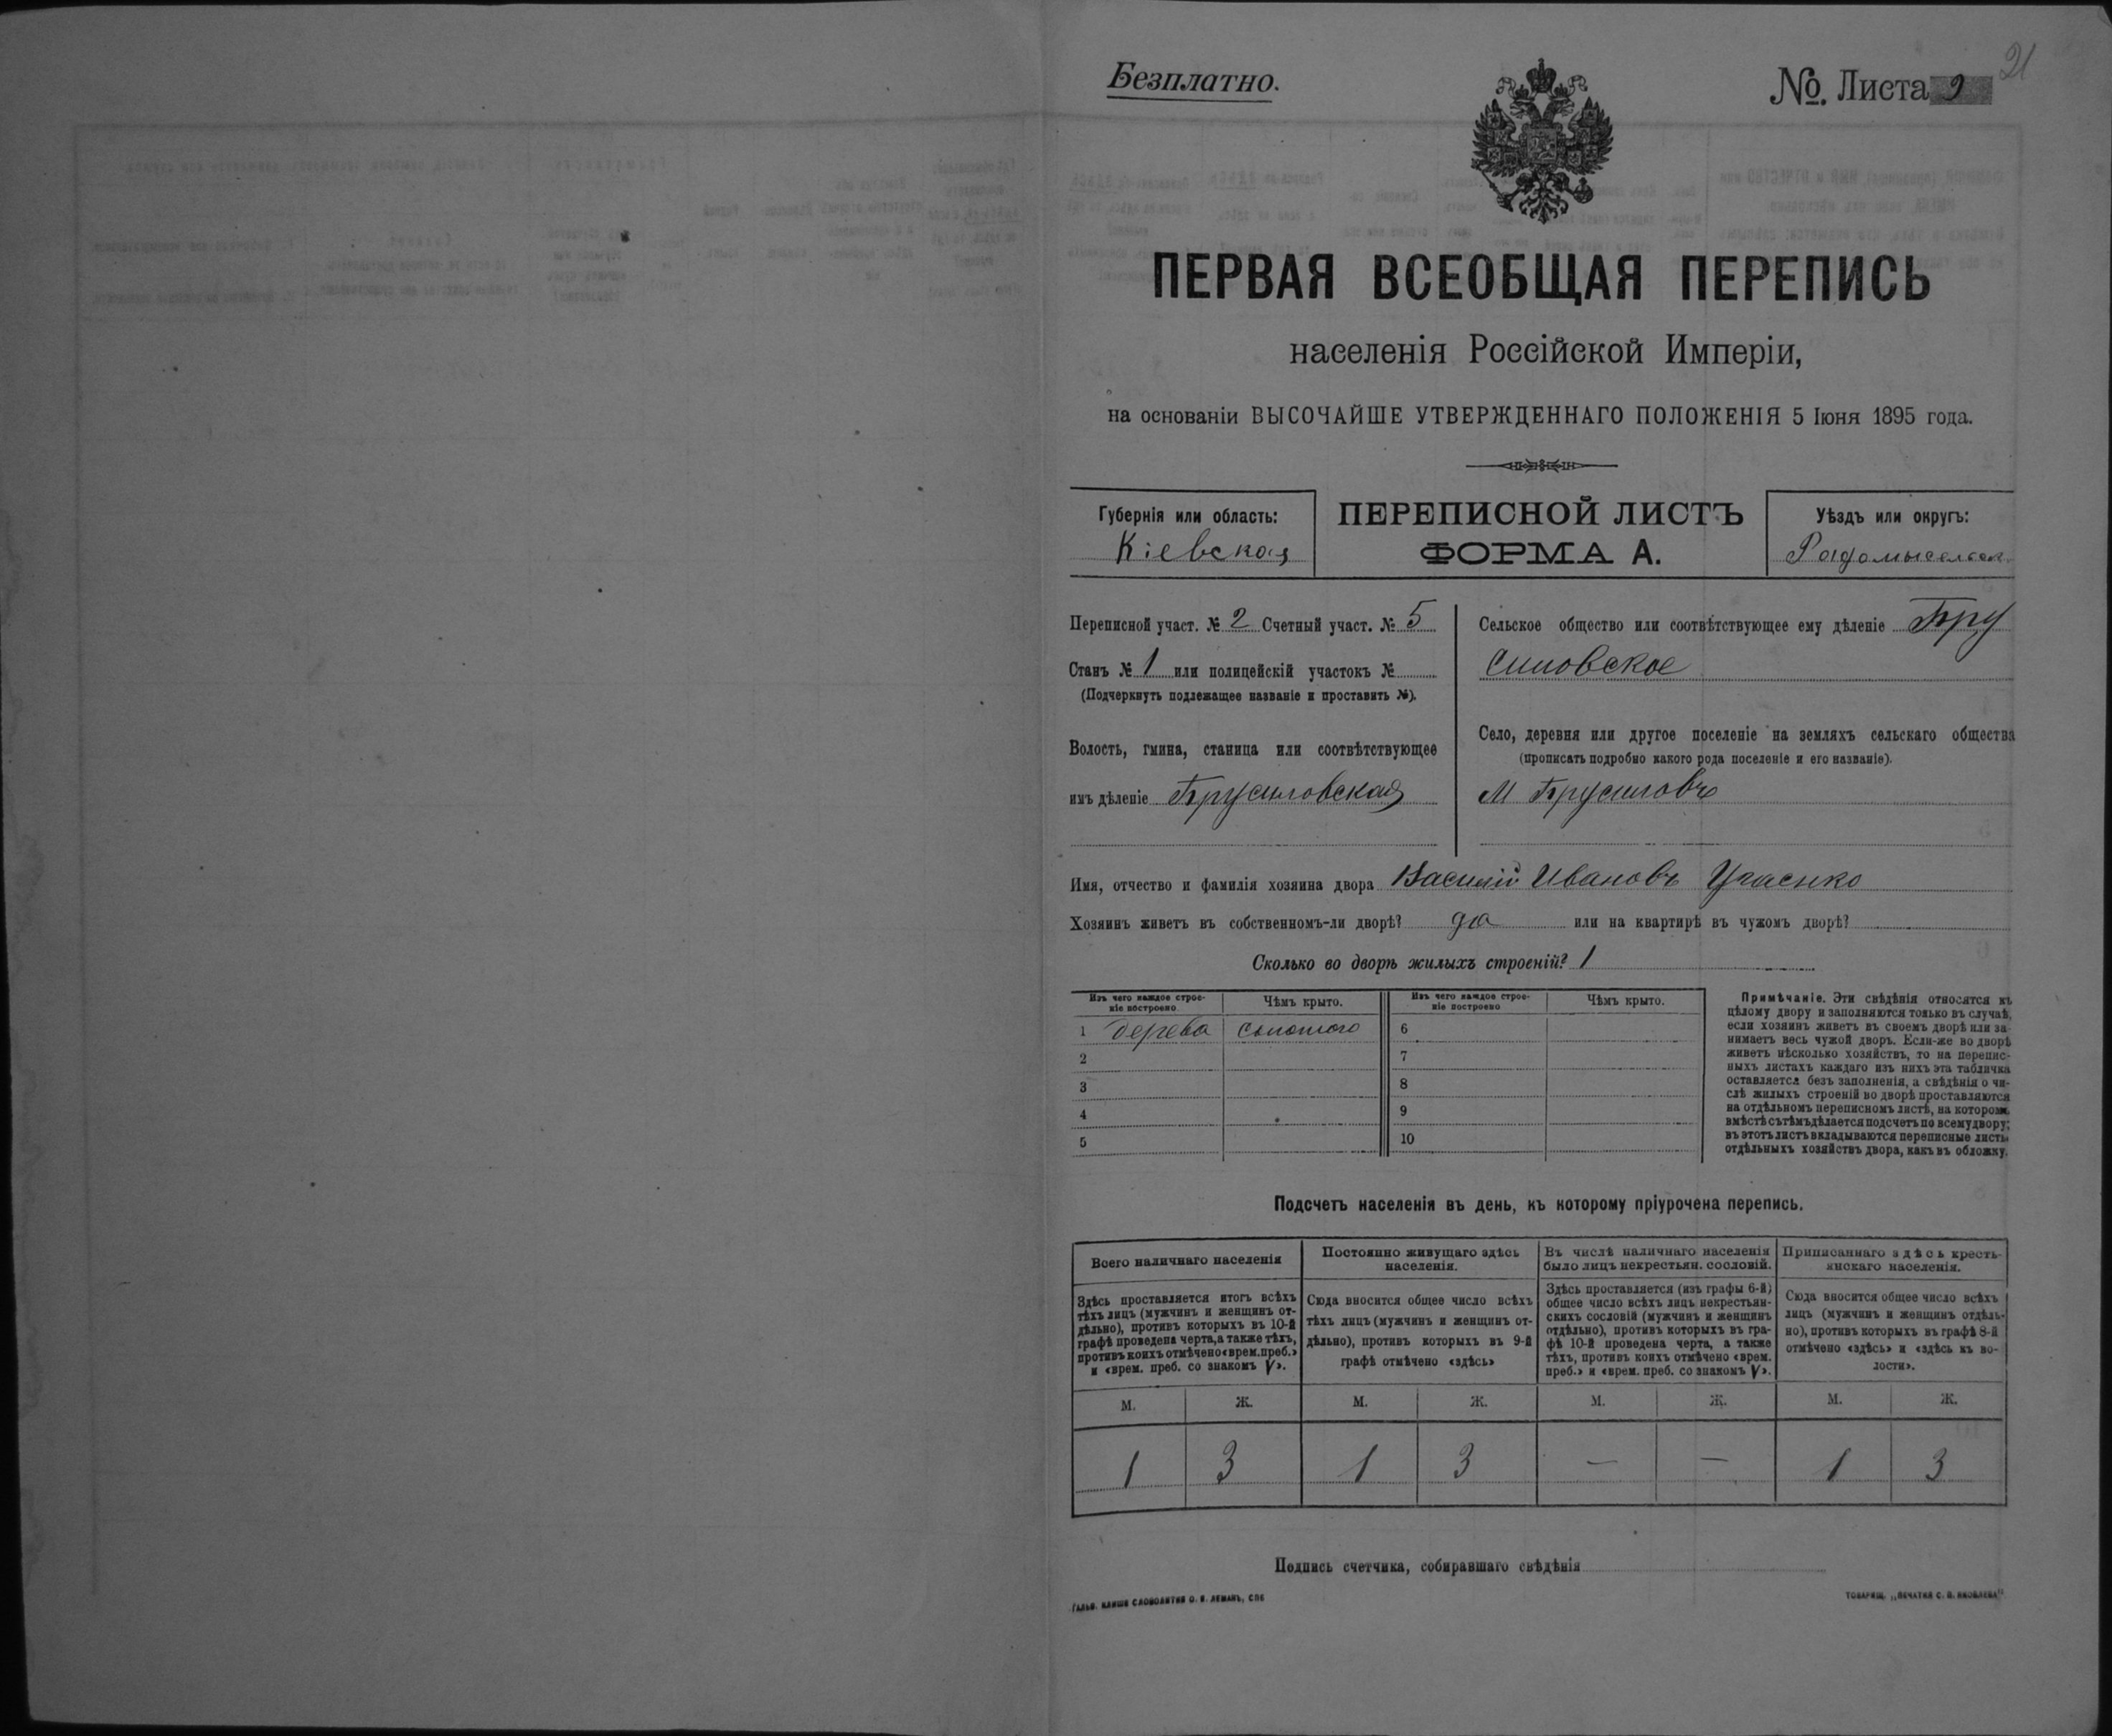 Безплатно.
№. Листа 9
21
ПЕРВАЯ ВСЕОБЩАЯ ПЕРЕПИСЬ
населенія Россійской Имперіи,
на основаніи ВЫСОЧАЙШЕ УТВЕРЖДЕННАГО ПОЛОЖЕНІЯ 5 Іюня 1895 года.
Губернія или область:
Кіевская
ПЕРЕПИСНОЙ ЛИСТЪ
ФОРМА А.
Уѣздъ или округъ:
Радомысльск.
Переписной участ. № 2 Счетный участ. № 5
Станъ № 1 или полицейскій участокъ №
(Подчеркнуть подлежащее названіе и проставить №).
Волость, гмина, станица или соотвѣтствующее
имъ дѣленіе Брусиловская
Сельское общество или соотвѣтствующее ему дѣленіе Бру
силовское
Село, деревня или другое поселеніе на земляхъ сельскаго общества
(прописать подробно какого рода поселеніе и его названіе).
М Брусиловъ
Имя, отчество и фамилія хозяина двора Василій Ивановъ
Хозяинъ живетъ въ собственномъ-ли дворѣ? да или на квартирѣ въ чужомъ дворѣ?
Сколько во дворѣ жилыхъ строеній? 1
Изъ чего каждое строе-
ніе построено
Чѣмъ крыто.
Изъ чего каждое строе-
ніе построено
Чѣмъ крыто.
1 дерева соломою 6
2 7
3 8
4 9
5 10
Примѣчаніе. Эти свѣдѣнія относятся къ
цѣлому двору и заполняются только въ случаѣ,
если хозяинъ живетъ въ своемъ дворѣ или за-
нимаетъ весь чужой дворъ. Если-же во дворѣ
живетъ нѣсколько хозяйствъ, то на перепис-
ныхъ листахъ каждаго изъ нихъ эта табличка
оставляется безъ заполненія, а свѣдѣнія о чи-
слѣ жилыхъ строеній во дворѣ проставляются
на отдѣльномъ переписномъ листѣ, на которомъ
вмѣстѣ съ тѣмъ дѣлается подсчетъ по всему двору;
въ этотъ листъ вкладываются переписные листы
отдѣльныхъ хозяйствъ двора, какъ въ обложку.
Подсчетъ населенія въ день, къ которому пріурочена перепись.
Всего наличнаго населенія
Здѣсь проставляется итогъ всѣхъ
тѣхъ лицъ (мужчинъ и женщинъ от-
дѣльно), противъ которыхъ въ 10-й
графѣ проведена черта, а также тѣхъ,
противъ коихъ отмѣчено «врем. преб.»
и «врем. преб. со знакомъ V».
Постоянно живущаго здѣсь
населенія.
Сюда вносится общее число всѣхъ
тѣхъ лицъ (мужчинъ и женщинъ от-
дѣльно), противъ которыхъ въ 9-й
графѣ отмѣчено «здѣсь»
Въ числѣ наличнаго населенія
было лицъ некрестьян. сословій.
Здѣсь проставляется (изъ графы 6-й)
общее число всѣхъ лицъ некрестьян-
скихъ сословій (мужчинъ и женщинъ
отдѣльно), противъ которыхъ въ гра-
фѣ 10-й проведена черта, а также
тѣхъ, противъ коихъ отмѣчено «врем.
преб.» и «врем. преб. со знакомъ V».
Приписаннаго здѣсь кресть-
янскаго населенія.
Сюда вносится общее число всѣхъ
лицъ (мужчинъ и женщинъ отдѣль-
но), противъ которыхъ въ графѣ 8-й
отмѣчено «здѣсь» и «здѣсь къ во-
лости».
М. Ж. М. Ж. М. Ж. М. Ж.
1 3 1 3 — — 1 3
Подпись счетчика, собиравшаго свѣдѣнія
ГАЛЬВ. КЛИШЕ СЛОВОЛИТНИ О. И. ЛЕМАНЪ, СПБ
ТОВАРИЩ. „ПЕЧАТНЯ С. П. ЯКОВЛЕВА"